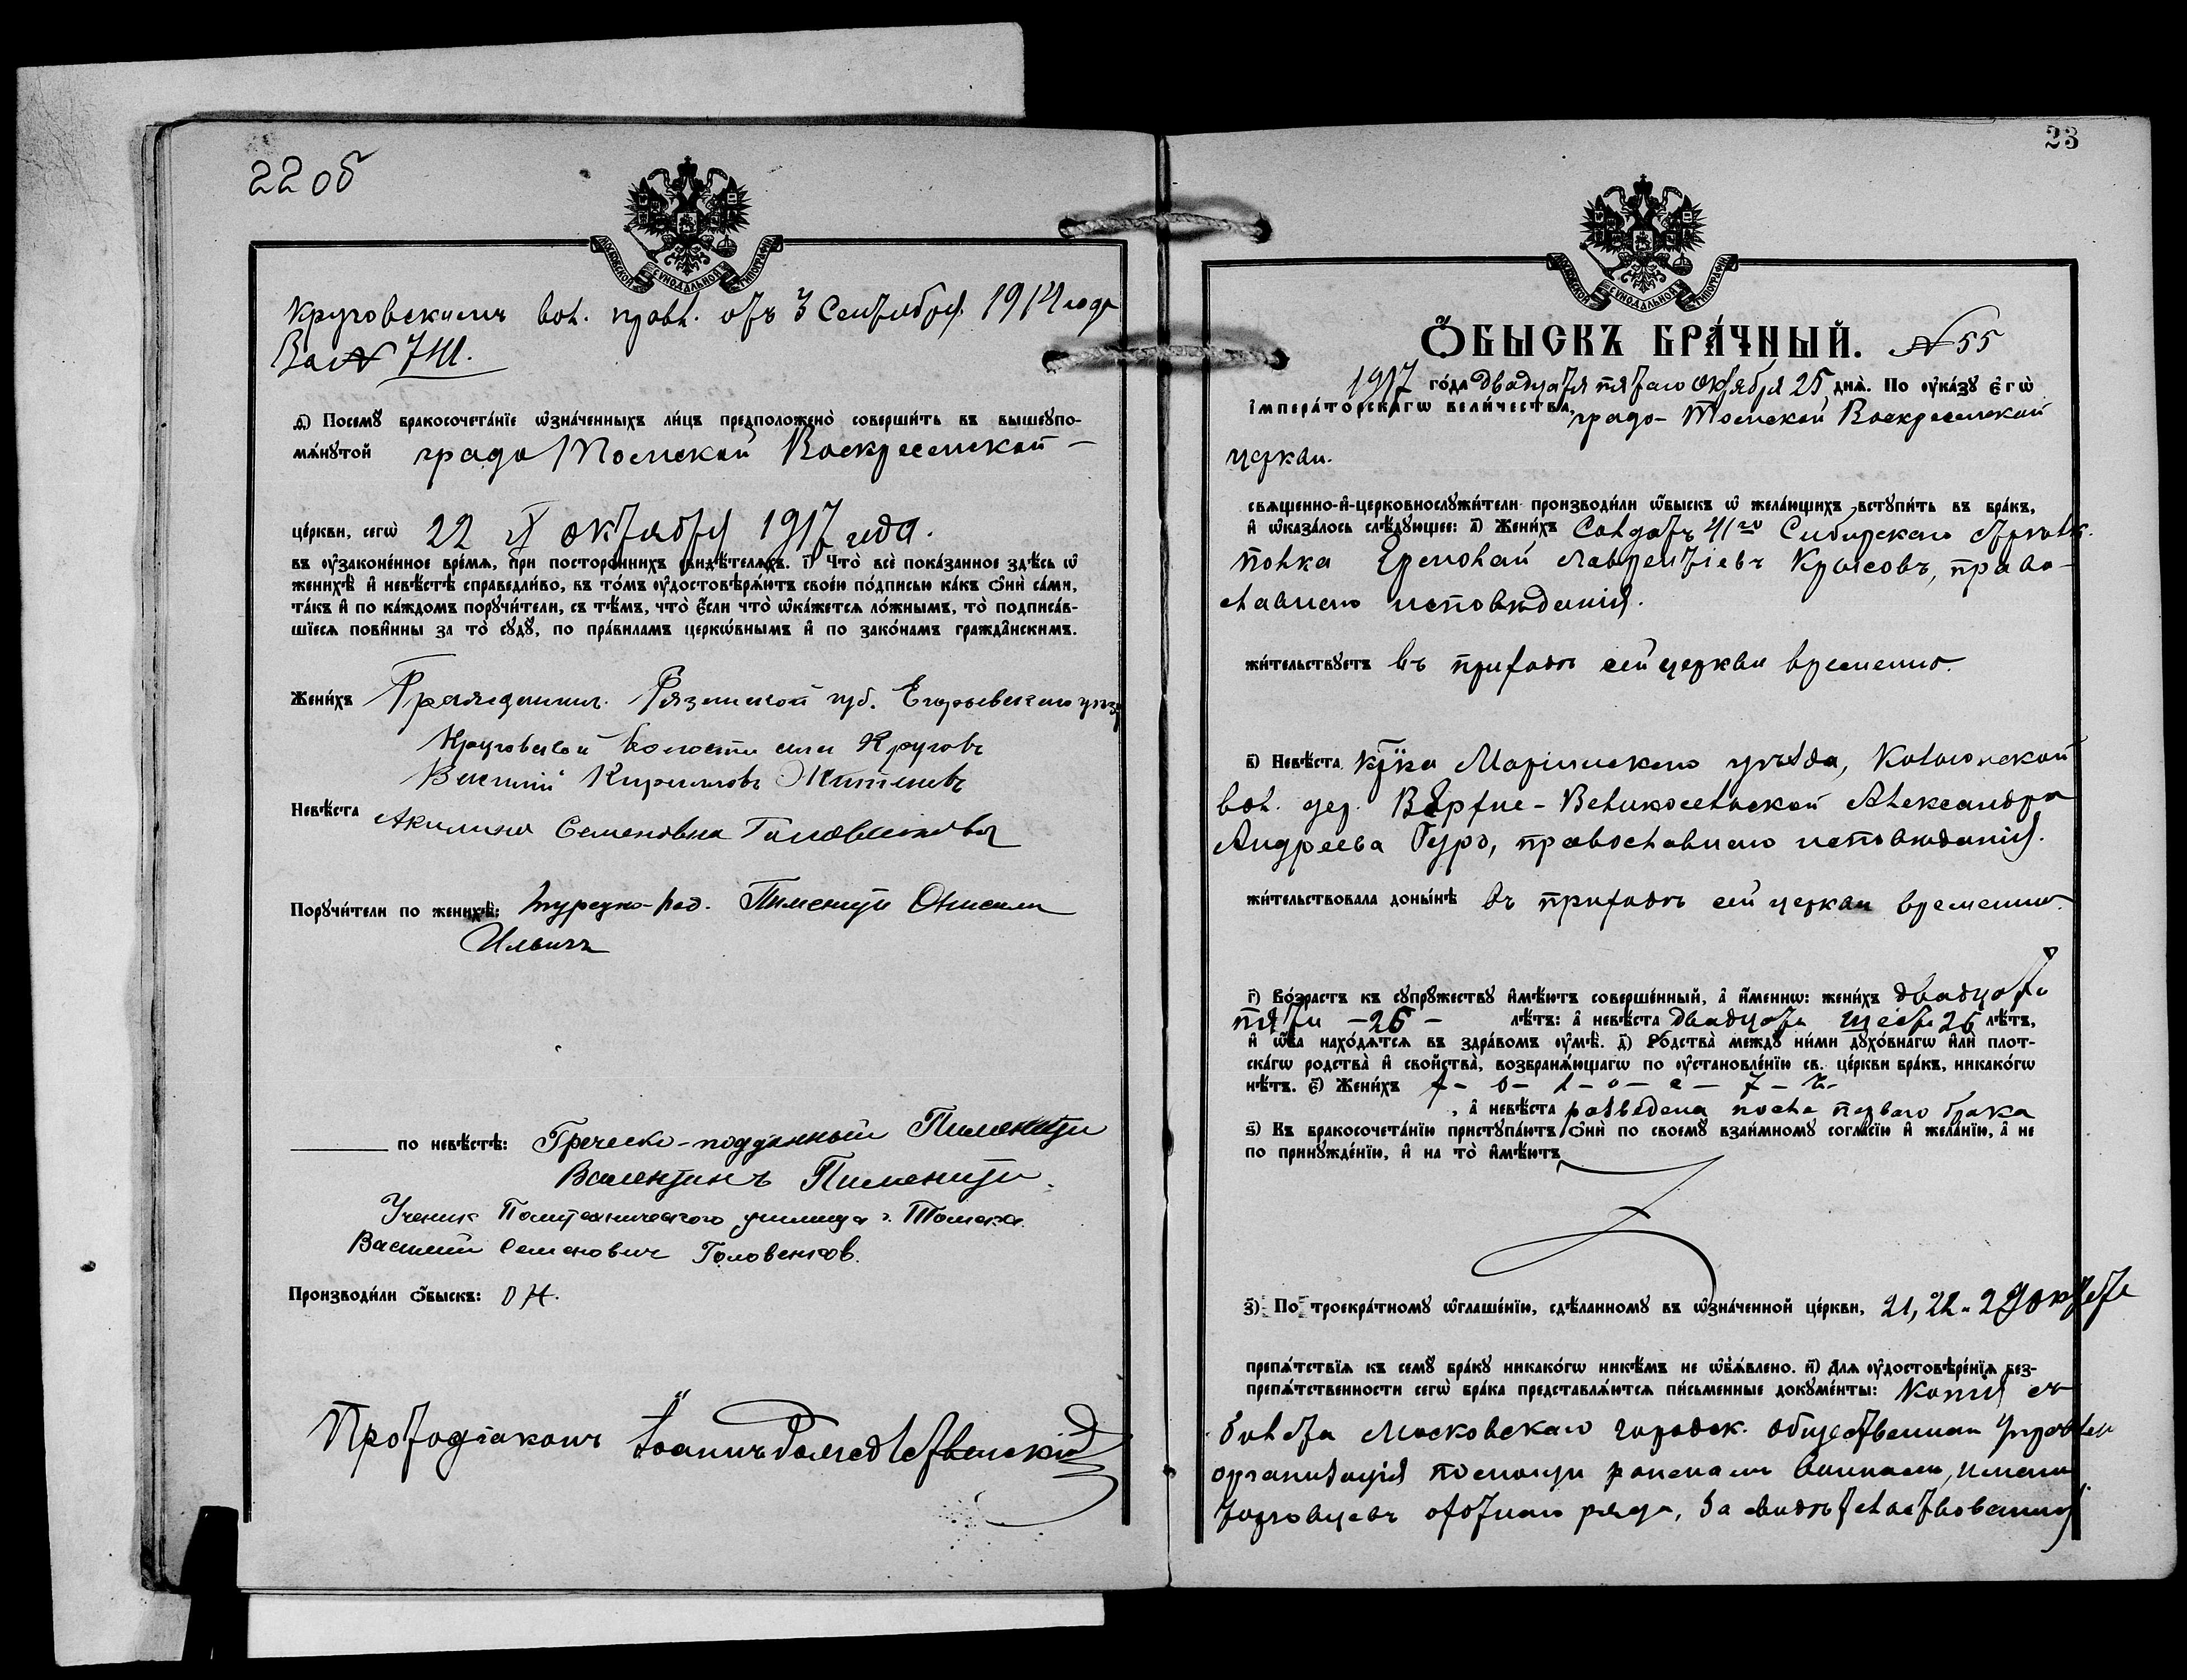 22 об
МОСКОВСКОЙ СѴНОДАЛЬНОЙ ТИПОГРАФІИ
Круговскимъ вол. правл. отъ 3 Сентября 1914 года
За № 741.
д҃) Посемꙋ̀ бракосочета́нїе ѡ҆зна́ченныхъ ли́цъ предположено̀ соверши́ть въ вышеꙋпо-
мѧ́нꙋтой градо Томской Воскресенской
це́ркви, сегѡ̀ 22 октября 1917 года.
въ ᲂу҆зако́ненное вре́мѧ, при посторо́ннихъ свидѣ́телѧхъ. і҃) Что̀ всѐ пока́занное здѣ́сь ѡ҆
женихѣ̀ и҆ невѣ́стѣ справедли́во, въ то́мъ ᲂу҆достовѣрѧ́ютъ свое́ю по́дписью ка́къ ѻ҆нѝ са́ми,
та́къ и҆ по ка́ждомъ порꙋчи́тели, съ тѣ́мъ, что̀ є҆́сли что̀ ѡ҆ка́жетсѧ ло́жнымъ, то̀ подписа́в-
шїесѧ пови́нны за то̀ сꙋдꙋ̀, по пра́виламъ церкѡ́внымъ и҆ по зако́намъ гражда́нскимъ.
Жени́хъ Гражданинъ Рязанской губ. Егорьевскаго уез.
Круговской волости села Круговъ
Василий Кириллов
Невѣ́ста Акилина Семеновна Головенкова
Порꙋчи́тели по женихѣ̀: Турецко-под. Пимениди
Ильичъ
по невѣ́стѣ: Греческо-подданный Пименити
Валентинъ Пименити.
Ученик Политехнического училища г. Томска
Василий Семенович Головенков.
Производи́ли ѻ҆́быскъ:
Протодіаконъ Іоаннъ Рождественскій
23
МОСКОВСКОЙ СѴНОДАЛЬНОЙ ТИПОГРАФІИ
Ѻ҆́БЫСКЪ БРА́ЧНЫЙ. № 55
1917 го́да двадцать пятаго октября 25 днѧ̀. По ᲂу҆ка́зꙋ Є҆гѡ̀
І҆мпера́торскагѡ Вели́чества, градо-Томской Воскресенской
церкви.
свѧще́нно-и҆-церковнослꙋжи́тели производи́ли ѡ҆́быскъ ѡ҆ жела́ющихъ встꙋпи́ть въ бра́къ,
и҆ ѡ҆каза́лось слѣ́дꙋющее: а҃) Жени́хъ Солдатъ 41го Сибирскаго стрѣлк.
полка Ермолай Лаврентіевъ Крысовъ, право-
славнаго исповѣданія.
жи́тельствꙋетъ въ приходѣ сей церкви временно.
в҃) Невѣ́ста кр҃ка Маріинскаго уѣзда, Колыонской
вол. дер. Верхне-Великосельской Александра
Андреева Гуро, православнаго исповѣданія.
жи́тельствовала доны́нѣ въ приходѣ сей церкви временно.
г҃) Во́зрастъ къ сꙋпрꙋ́жествꙋ и҆мѣ́ютъ соверше́нный, а҆ и҆́меннѡ: жени́хъ двадцати
пяти – 25 – лѣ́тъ: а҆ невѣ́ста двадцати шести 26 лѣ́тъ,
и҆ ѡ҆́ба нахо́дѧтсѧ въ здра́вомъ ᲂу҆мѣ̀. д҃) Родства̀ междꙋ̀ ни́ми дꙋхо́внагѡ и҆лѝ плот-
ска́гѡ родства̀ и҆ свойства̀, возбранѧ́ющагѡ по ᲂу҆становле́нїю св. це́ркви бра́къ, никако́гѡ
нѣ́тъ. є҃) Жени́хъ х – о – л – о – с – т – ъ –
, а҆ невѣ́ста разведена после перваго брака
ѕ҃) Къ бракосочета́нїю пристꙋпа́ютъ ѻ҆нѝ по своемꙋ̀ взаи́мномꙋ согла́сїю и҆ жела́нїю, а҆ не
по принꙋжде́нїю, и҆ на то̀ и҆мѣ́ютъ
з҃) По троекра́тномꙋ ѡ҆глаше́нїю, сдѣ́ланномꙋ въ ѡ҆зна́ченной це́ркви, 21, 22 и октября
препѧ́тствїѧ къ семꙋ̀ бра́кꙋ никако́гѡ никѣ́мъ не ѡ҆б̾ѧ́влено. и҃) Длѧ ᲂу҆достовѣре́нїѧ без-
препѧ́тственности сегѡ̀ бра́ка представлѧ́ютсѧ пи́сьменные докꙋме́нты: Копія съ
билета Московскаго городск. общественнаго Управлен
организація помощи раненымъ воинамъ, имени
торговцевъ охотнаго ряда, засвидѣтельствованная